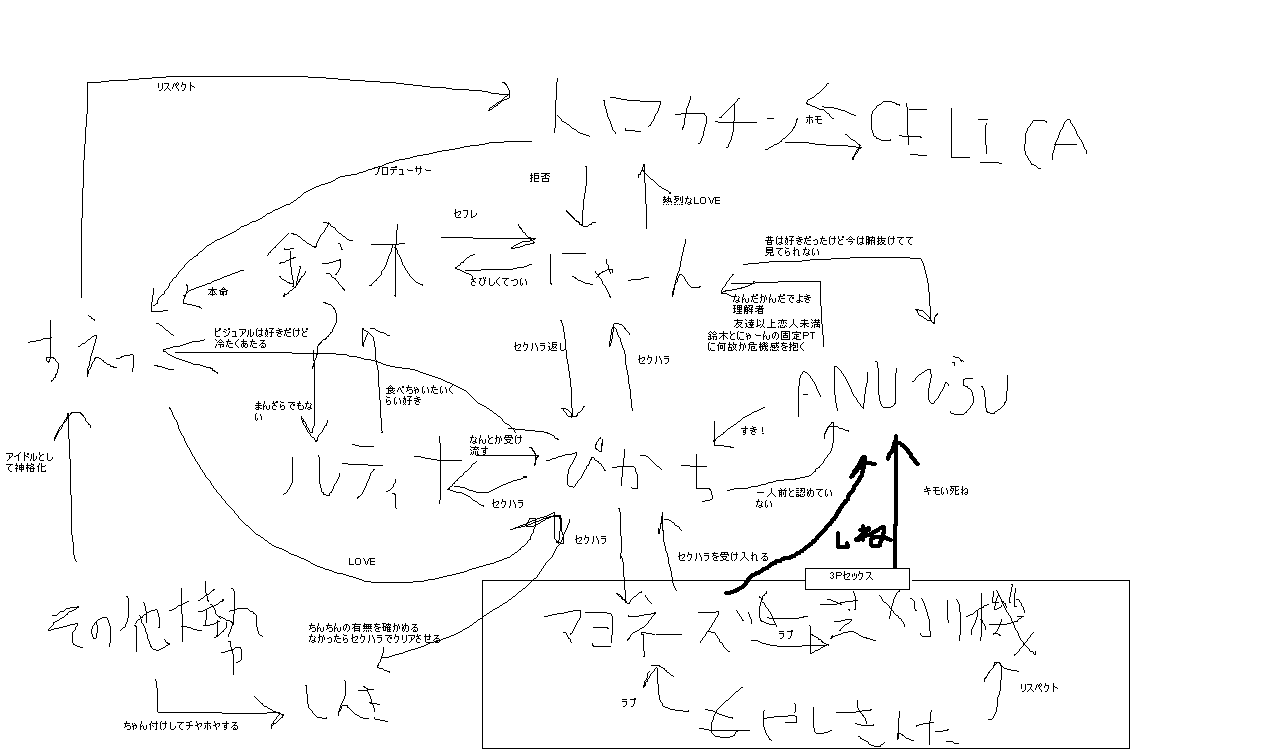 リスペクト
トロカチン
ホモ
CELICA
プロデューサー
拒否
熱烈なLOVE
セフレ
鈴木
にゃーん
さびしくてつい
本命
昔は好きだったけど今は腑抜けてて
見てられない
なんだかんだでよき
理解者
友達以上恋人未満
鈴木とにゃーんの固定PT
に何故か危機感を抱く
すえっこ
ビジュアルは好きだけど
冷たくあたる
セクハラ返し
セクハラ
まんざらでもな
い
食べちゃいたいく
らい好き
ANUびSU
すき！
アイドルとし
て神格化
ルティナ
なんとか受け
流す
セクハラ
ぴかち
一人前と認めてい
ない
キモい死ね
しね
LOVE
セクハラ
セクハラを受け入れる
3Pセックス
その他大勢
ちんちんの有無を確かめる
なかったらセクハラでクリアさせる
マヨネーズ
ラブ
芝刈り機
しんき
ちゃん付けしてチヤホヤする
ラブ
もやしさんた
リスペクト